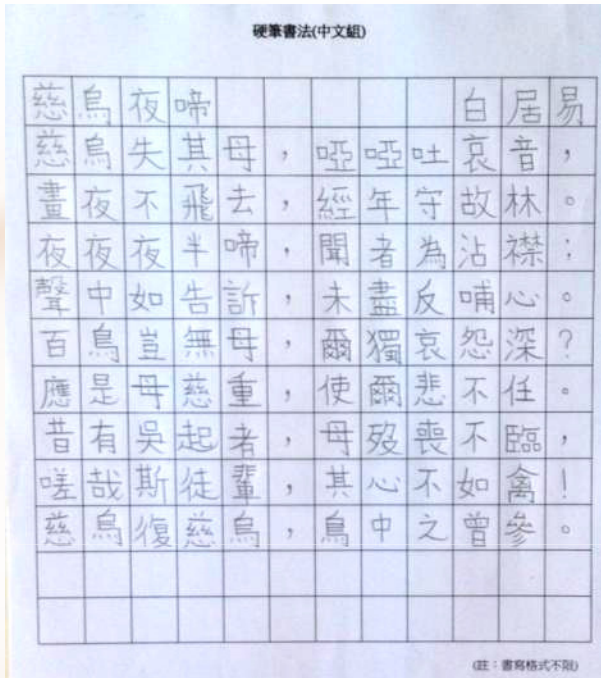 硬筆書法(中文組)
慈烏夜啼 白居易
慈烏失其母，啞啞吐哀音，
晝夜不飛去，經年守故林。
夜夜夜半啼，聞者為沾襟；
聲中如告訴，未盡反哺心。
百鳥豈無母，爾獨哀怨深？
應是母慈重，使爾悲不任。
昔有吳起者，母歿喪不臨，
嗟哉斯徒輩，其心不如禽！
慈烏復慈烏，鳥中之曾參。
(註：書寫格式不限)